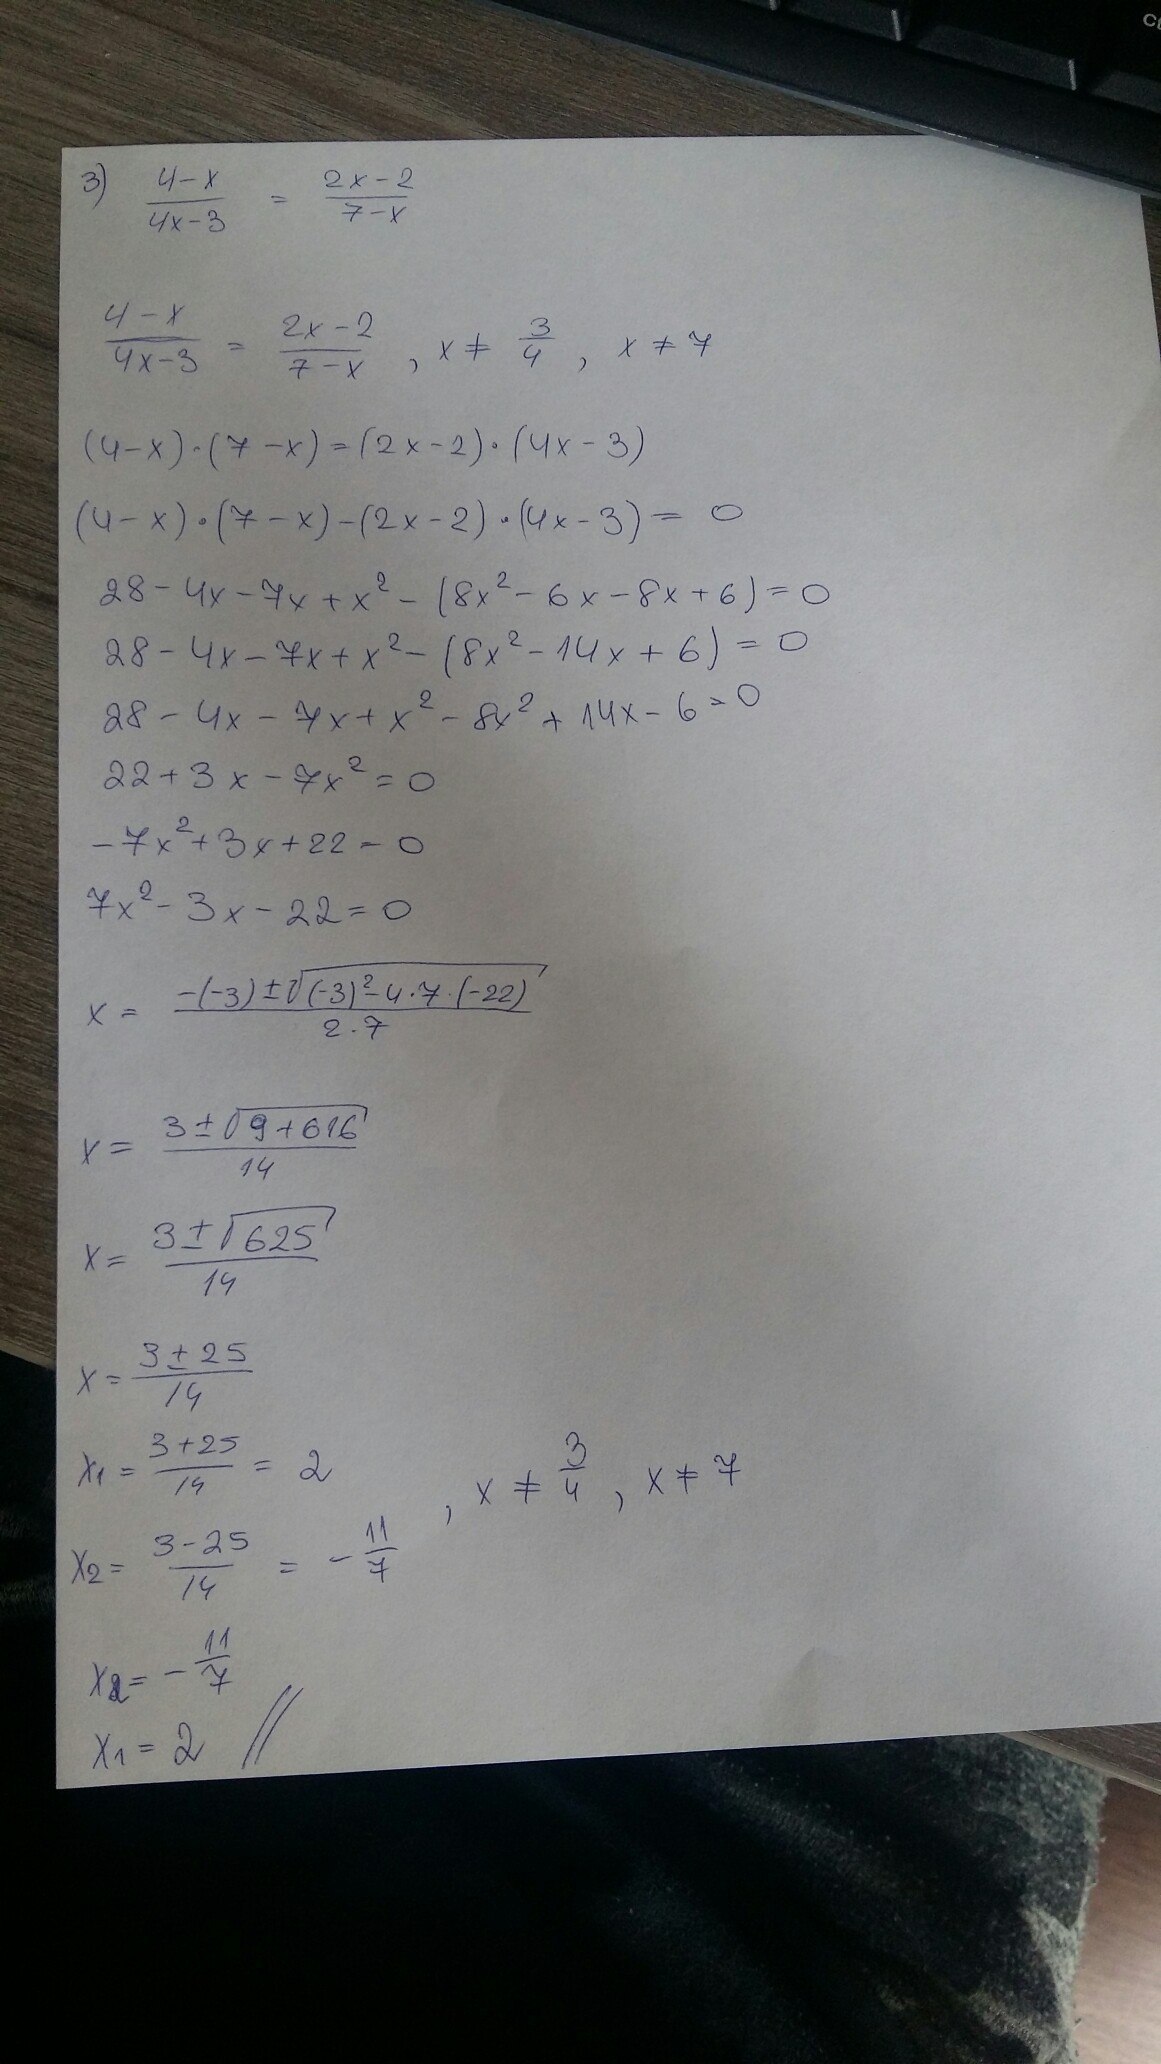 3) (4-x)/(4x-3) = (2x-2)/(7-x)
(4-x)/(4x-3) = (2x-2)/(7-x) , x ≠ 3/4 , x ≠ 7
(4-x)·(7-x)=(2x-2)·(4x-3)
(4-x)·(7-x)-(2x-2)·(4x-3)= 0
28-4x-7x+x²-(8x²-6x-8x+6)=0
28-4x-7x+x²-(8x²-14x+6)=0
28-4x-7x+x²-8x²+14x-6=0
22+3x-7x²=0
-7x²+3x+22=0
7x²-3x-22=0
x = (-(-3)±√((-3)²-4·7·(-22)))/(2·7)
x = (3±√(9+616))/14
x = (3±√625)/14
x = (3±25)/14
x₁ = (3+25)/14 = 2
, x ≠ 3/4 , x ≠ 7
x₂ = (3-25)/14 = -11/7
x₂ = -11/7
x₁ = 2 //